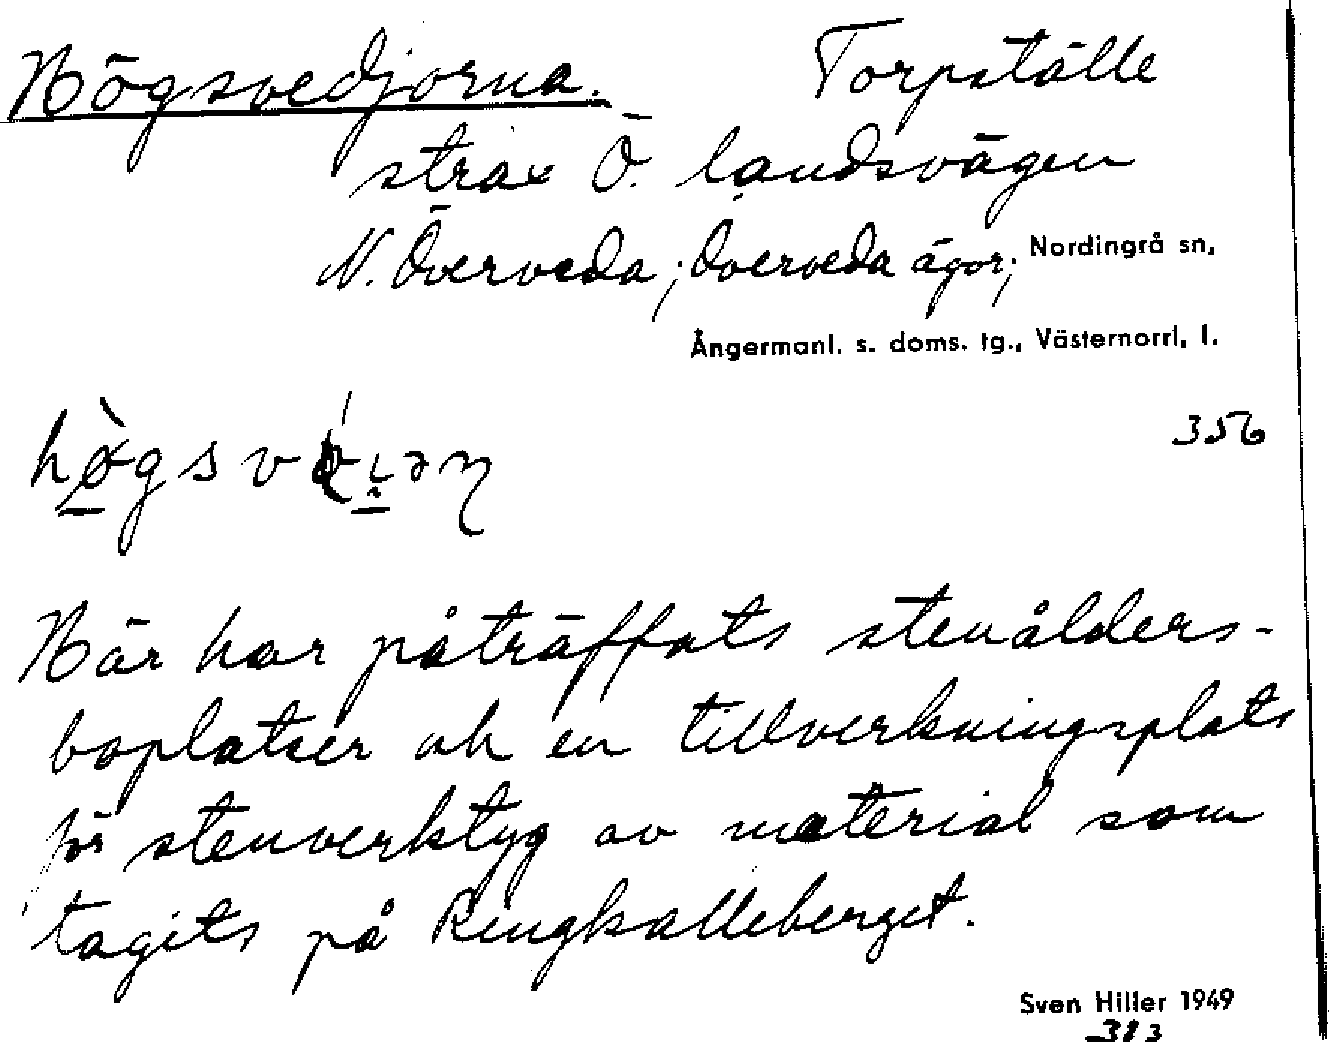 Högsvedjorna. Torpställe
strax Ö. landsvägen
N. Överveda; Överveda ägor; Nordingrå sn,
Ångermanl. s. doms. tg., Västernorrl. l.
356
Här har påträffats stenålders-
boplatser ock en tillverkningsplats
för stenverktyg av material som
tagits på Ringkalleberget.
Sven Hiller 1949
313